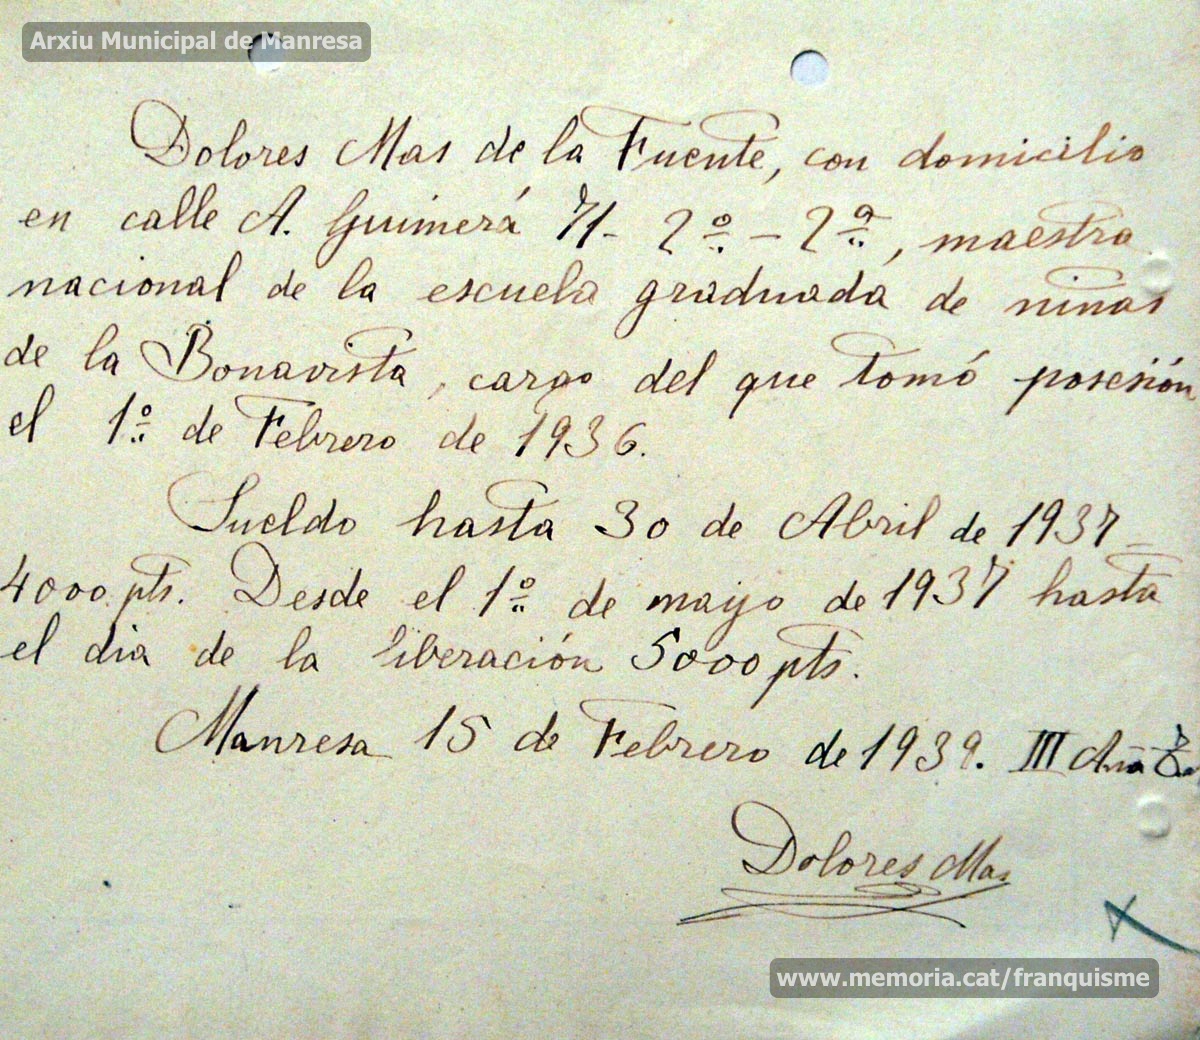 Arxiu Municipal de Manresa
Dolores Mas de la Fuente, con domicilio
en calle A. Guimerá 71- 2º - 2ª, maestra
nacional de la escuela graduada de niñas
de la Bonavista, cargo del que tomó posesión
el 1º de Febrero de 1936.
Sueldo hasta 30 de Abril de 1937 -
4000 pts. Desde el 1º de mayo de 1937 hasta
el dia de la liberación 5000 pts.
Manresa 15 de Febrero de 1939. III Año
Dolores Mas
www.memoria.cat/franquisme